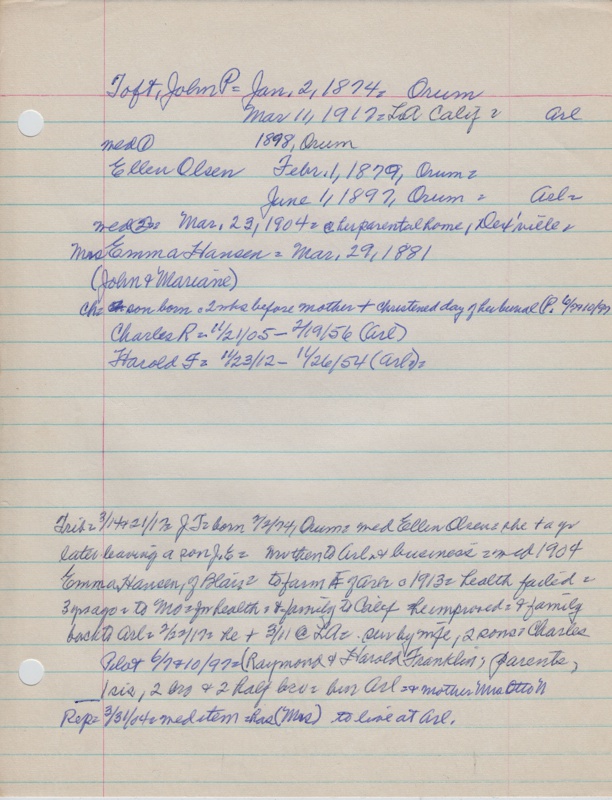 Toft, John P = Jan. 2, 1874 = Orum
Mar 11, 1917 = LA Calif = Arl
med ① 1898, Orum
Ellen Olsen Febr. 1, 1879, Orum =
June 1, 1897, Orum = Arl =
med ② = Mar. 23, 1904 = @ her parental home, Dex'ville,
Mrs Emma Hansen = Mar, 29, 1881
(John & Mariane)
Ch = son born 2 before mother + christened day of her burial (P. 6/7+10/97
Charles R = 11/21/05 - 2/19/56 (Arl)
Harold F = 11/23/12 - 11/26/54 (Arl) =
Trib = 3/14+21/17 = J T = born Orum = med Ellen Olsen = she + a yr
later leaving a son = to Arl & business = med 1904
Emma Hansen, of Blair = to farm of 1913 = health failed =
3 yrs ago = to Mo = health = & family to Calif he improved = & family
back to Arl = he + 3/11 @ LA = sur by wife, 2 sons = Charles
Pilot 6/7+10/97 = (Raymond & Harold Franklin, parents,
1 sis, 2 bro & 2 half bro = bur Arl = & mother Mrs Otto N
Rep = 3/31/04 = med item = has (Mrs) to live at Arl.